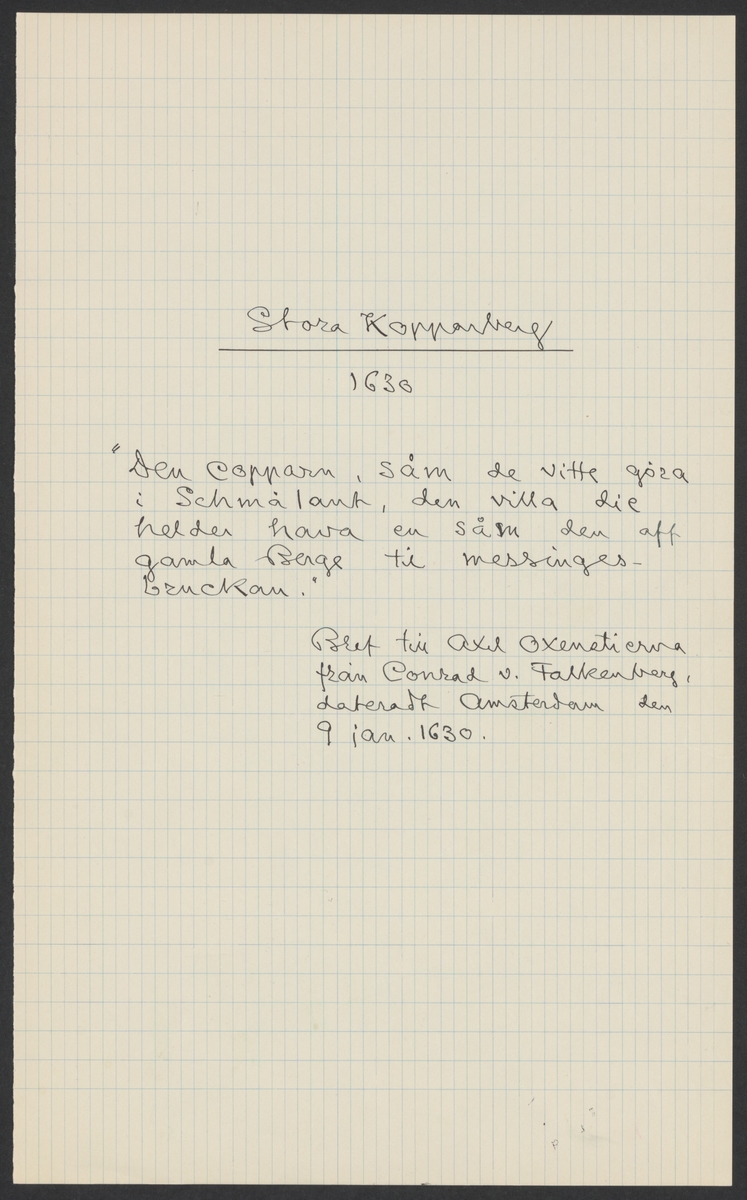 Stora Kopparberg
1630
"Den copparn, såm de vitte göra
i Schmålant, den villa die
helder hava en såm den aff
gamla Berge til messinges-
bruckan."
Bref till Axel Oxenstierna
från Conrad v. Falkenberg,
dateradt Amsterdam den
9 jan. 1630.